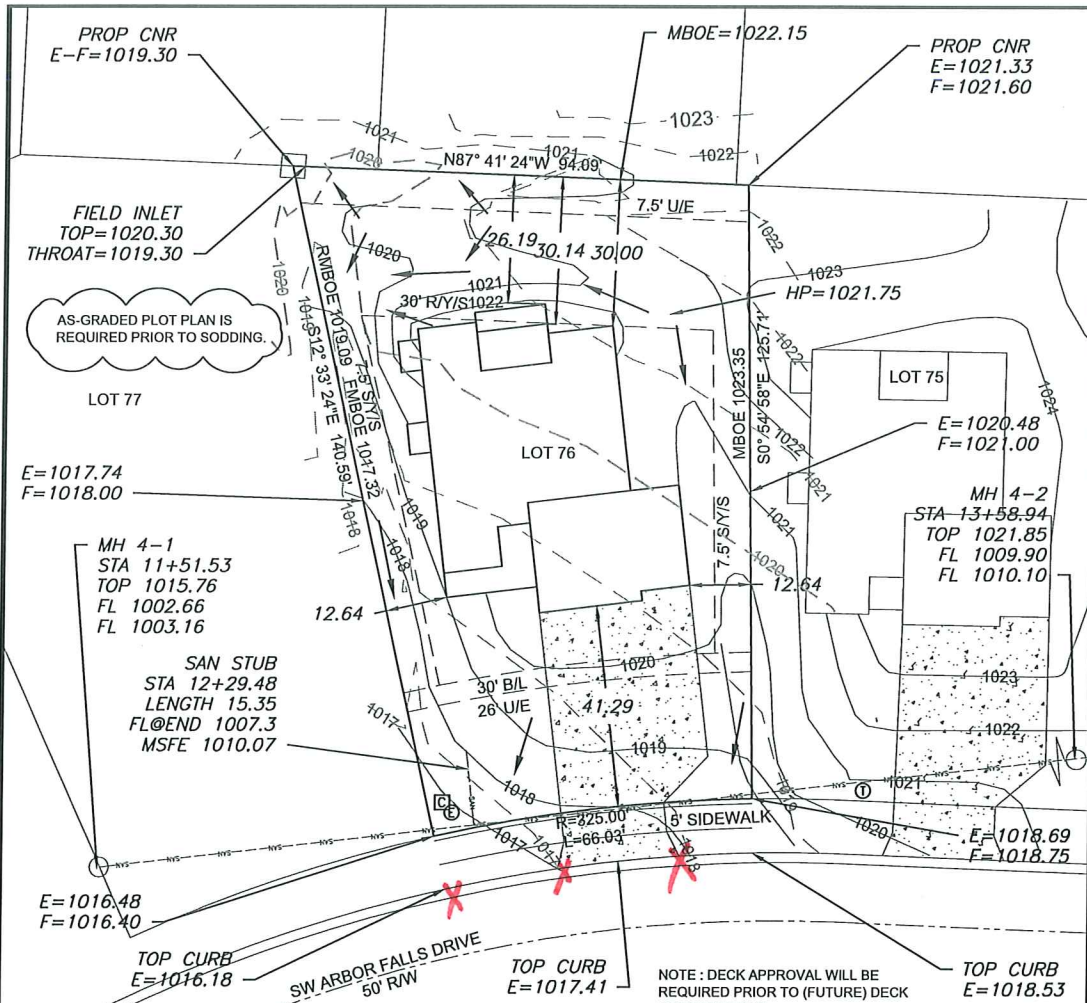 PROP CNR
E-F=1019.30
MBOE=1022.15
PROP CNR
E=1021.33
F=1021.60
1023
1021
1020
1021
1022
N87° 41' 24"W 94.09'
7.5' U/E
FIELD INLET
TOP=1020.30
THROAT=1019.30
1020
26.19
30.14
30.00
1022
1023
1020
1021
30' R/Y/S
1022
HP=1021.75
AS-GRADED PLOT PLAN IS
REQUIRED PRIOR TO SODDING.
1019
LOT 77
RMBOE 1019.09
FMBOE 1017.32
S12° 33' 24"E 140.59'
7.5' S/Y/S
MBOE 1023.35
S0° 54' 58"E 125.71'
1022
LOT 75
1024
LOT 76
E=1020.48
F=1021.00
1022
1021
E=1017.74
F=1018.00
1018
1019
1018
7.5' S/Y/S
1021
MH 4-2
STA 13+58.94
TOP 1021.85
FL 1009.90
FL 1010.10
MH 4-1
STA 11+51.53
TOP 1015.76
FL 1002.66
FL 1003.16
12.64
12.64
1020
SAN STUB
STA 12+29.48
LENGTH 15.35
FL@END 1007.3
MSFE 1010.07
1020
30' B/L
26' U/E
41.29
1023
1017
1019
1022
1018
SAN
C
E
T
1021
1019
R=225.00'
L=66.03'
5' SIDEWALK
1017
1017
1018
1020
SAN SAN SAN SAN SAN SAN
E=1018.69
F=1018.75
E=1016.48
F=1016.40
X X X
TOP CURB
E=1016.18
SW ARBOR FALLS DRIVE
50' R/W
TOP CURB
E=1017.41
NOTE : DECK APPROVAL WILL BE
REQUIRED PRIOR TO (FUTURE) DECK
TOP CURB
E=1018.53